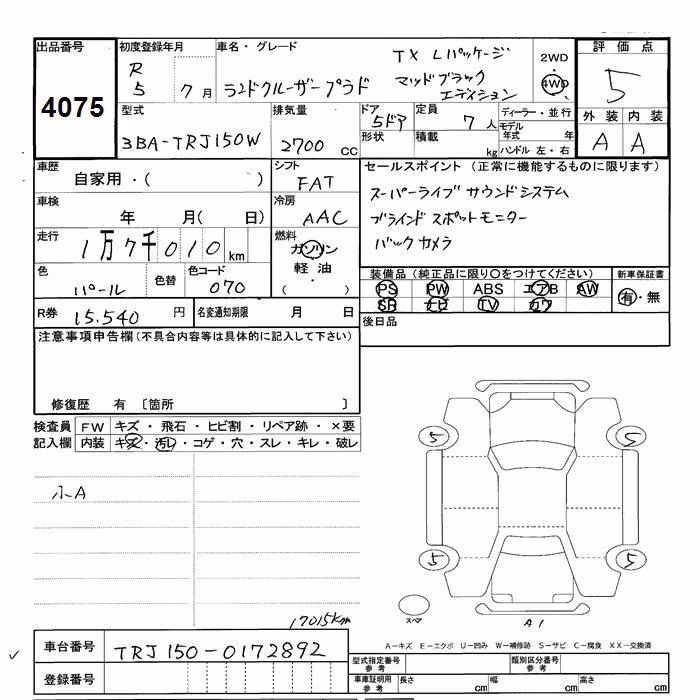 出品番号
4075
初度登録年月
R 5 7月
車名・グレード
TX Lパッケージ
ランドクルーザープラド マッドブラック
エディション
2WD
・
4WD
評価点
5
外装 内装
A A
型式
3BA-TRJ150W
排気量
2700 cc
ドア
5ドア
形状
定員
7人
積載
kg
ディーラー・並行
モデル年式 年
ハンドル 左・右
車歴
自家用・( )
シフト
FAT
車検
年 月( 日)
冷房
AAC
走行
1万7千010km
燃料
ガソリン
軽油
( ・ )
色
パール
色替
色コード
070
R券 15.540 円
名変通知期限 月 日
セールスポイント(正常に機能するものに限ります)
スーパーライブサウンドシステム
ブラインドスポットモニター
バックカメラ
装備品(純正品に限り〇をつけてください)
PS PW ABS エアB AW
SR ナビ TV カワ
新車保証書
有・無
後日品
注意事項申告欄(不具合内容等は具体的に記入して下さい)
修復歴 有 〔箇所 〕
検査員記入欄
FW キズ・飛石・ヒビ割・リペア跡・×要
内装 キズ・汚レ・コゲ・穴・スレ・キレ・破レ
小A
17015km
5 5
5 5
スペア
A1
A−キズ E−エクボ U−凹み W−補修跡 S−サビ C−腐食 XX−交換済
車台番号 TRJ150-0172892
登録番号
型式指定番号参考
類別区分番号参考
車庫証明用参考
長さ cm 幅 cm 高さ cm